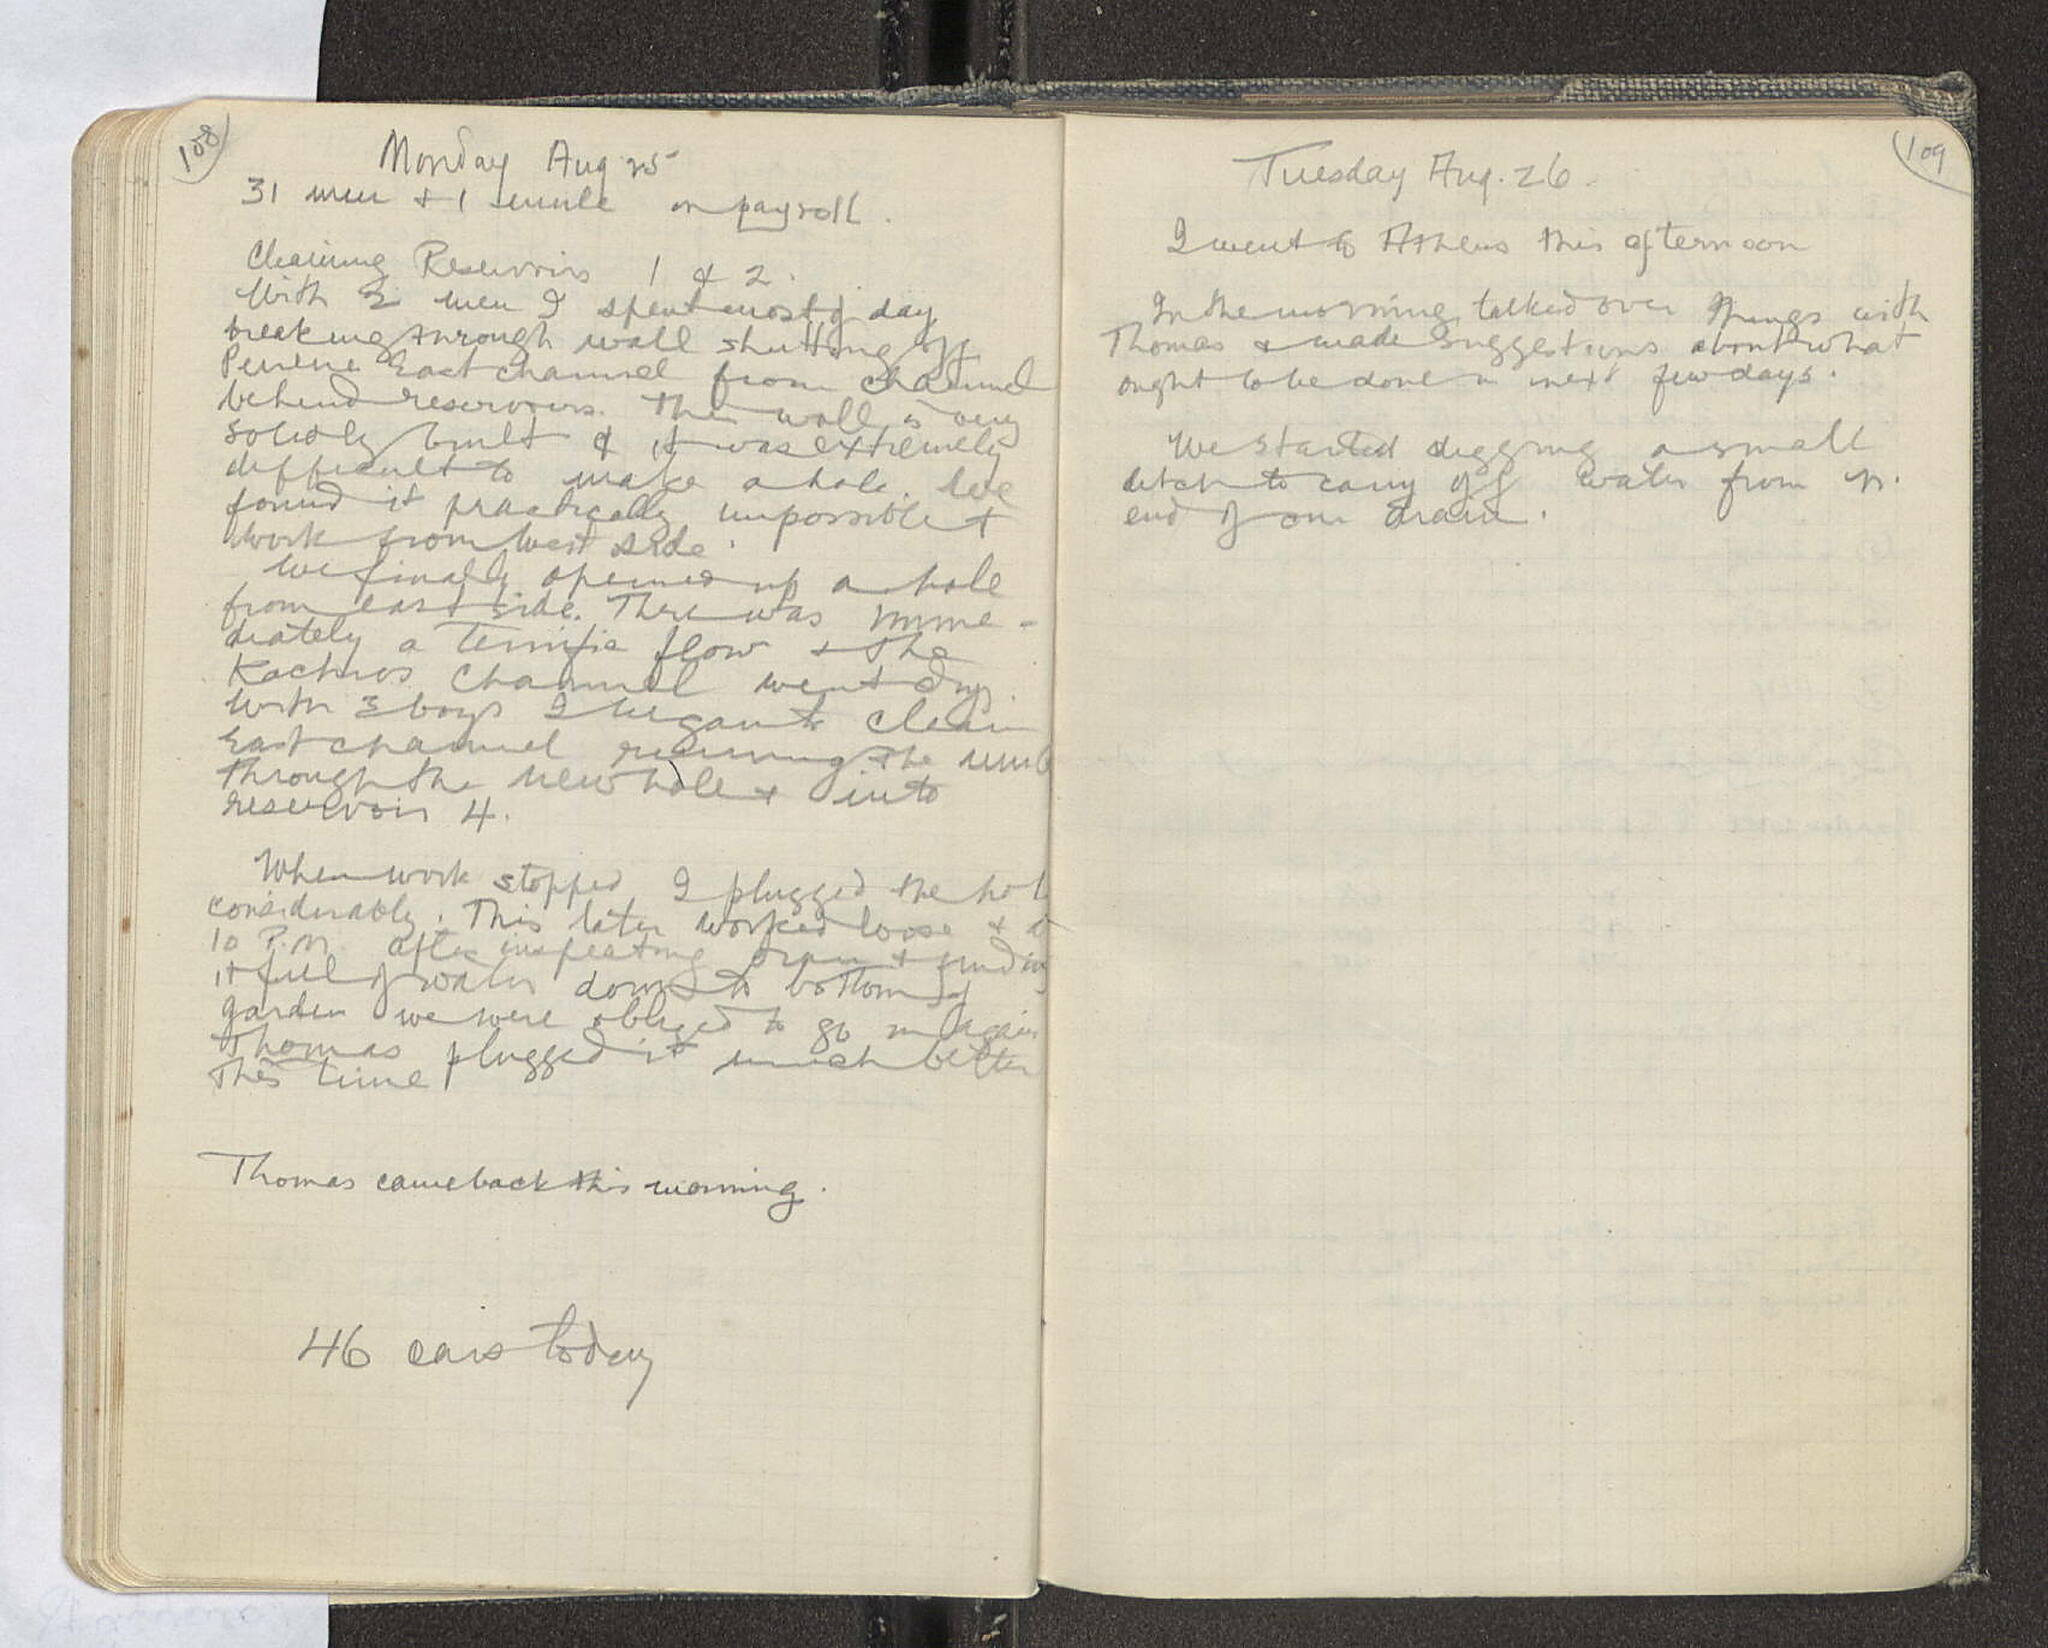 108
Monday Aug 25
31 men + 1 mule on payroll.
Cleaning Reservoirs 1 & 2.
With 2 men I spent most of day
breaking through wall shutting off
Peirene East channel from channel
behind reservoirs. The wall is very
solidly built & it was extremely
difficult to make a hole. We
found it practically impossible to
work from West side.
We finally opened up a hole
from east side. There was imme-
diately a terrific flow & the
channel went dry.
With 3 boys I began to clean
East channel running the mud
through the new hole & into
reservoir 4.
When work stopped I plugged the hol
considerably. This later worked loose &
10 P.M. after inspecting drain & finding
it full of water down to bottom of
garden we were obliged to go in again
Thomas plugged it much better
this time
Thomas came back this morning.
46 cars today
109
Tuesday Aug. 26.
I went to Athens this afternoon
In the morning talked over things with
Thomas & made suggestions about what
ought to be done in next few days.
We started digging a small
ditch to carry off water from n.
end of our drain.